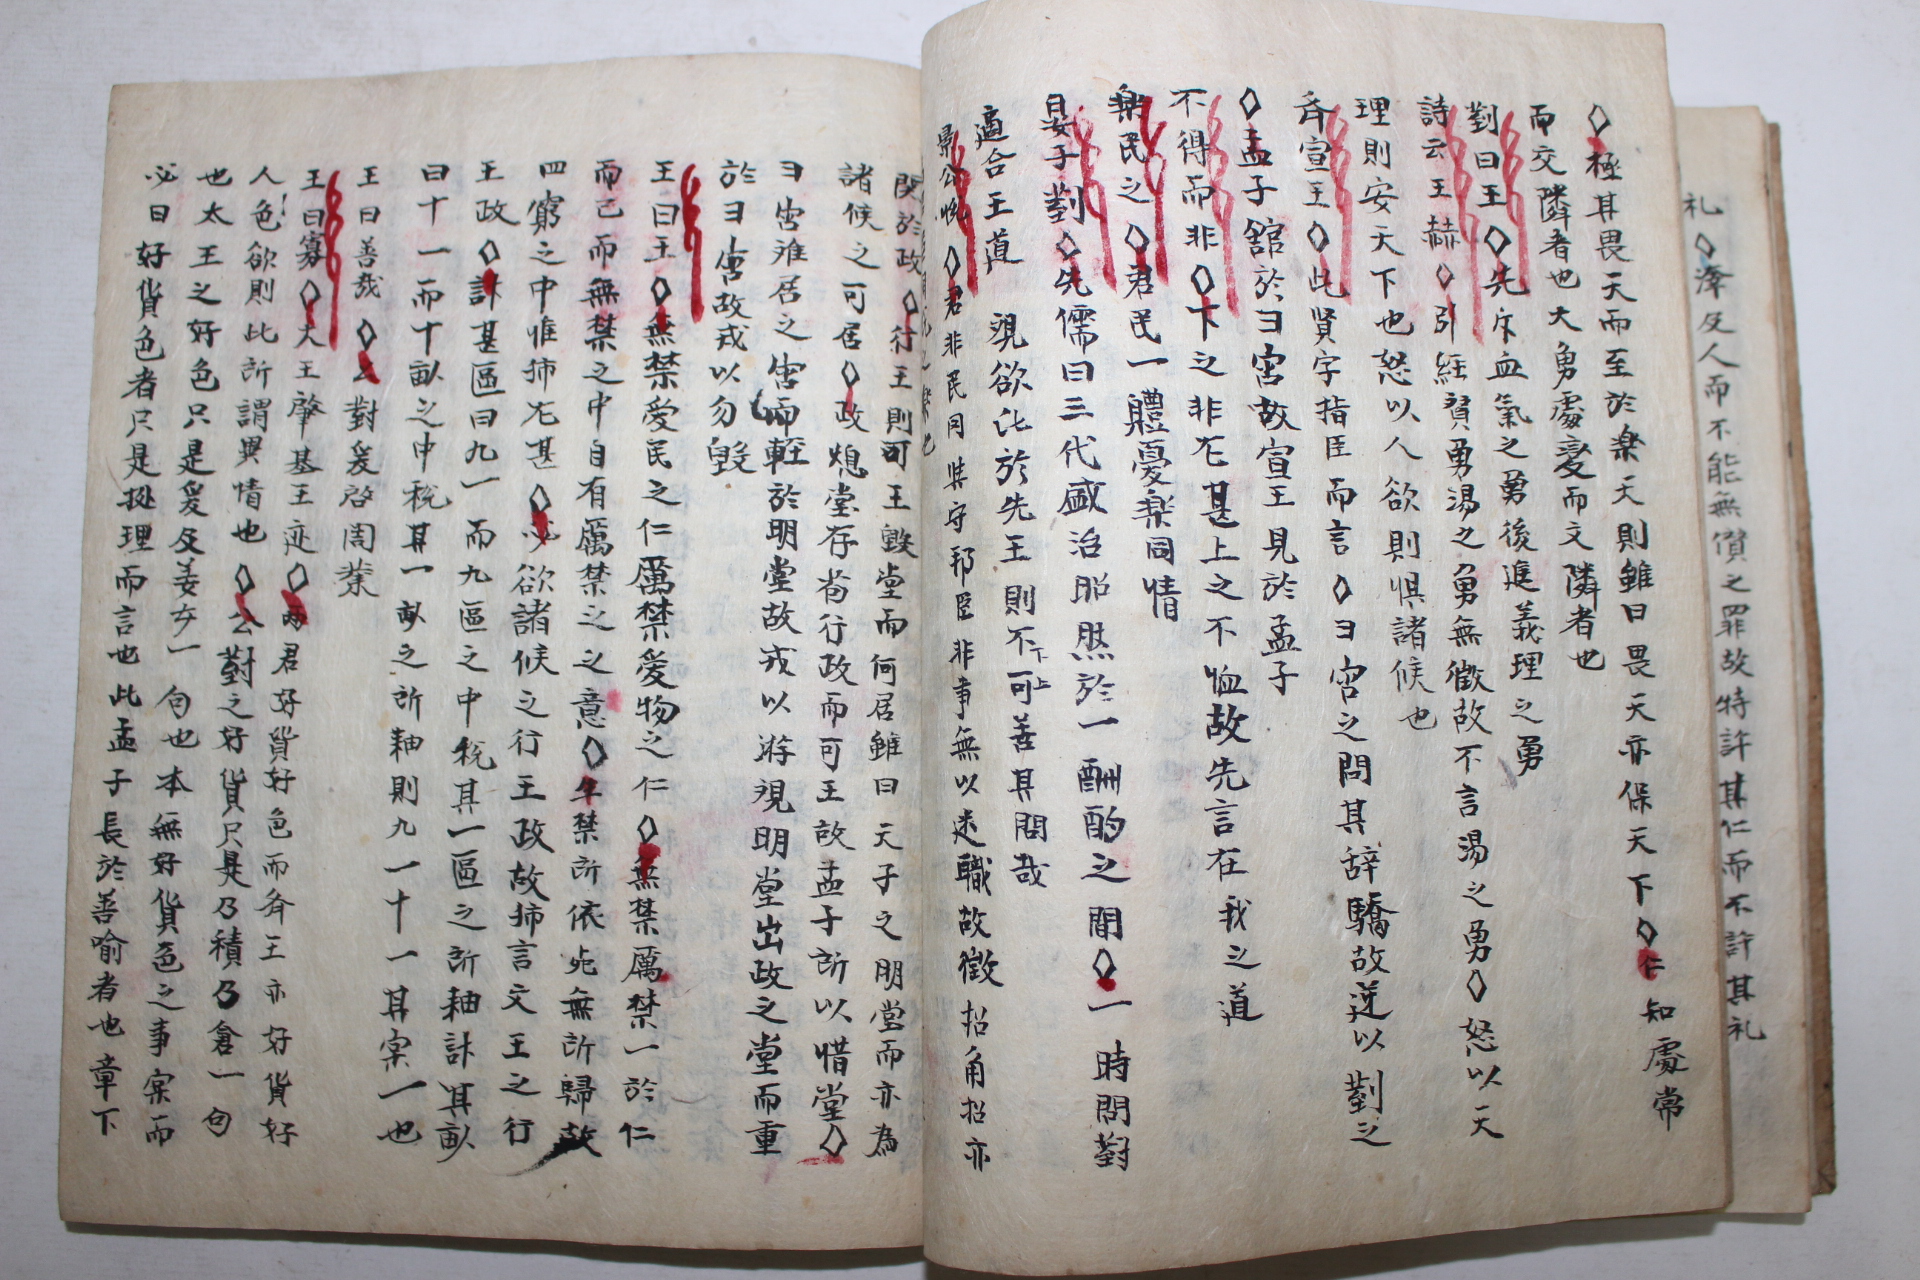 礼◇降反人而不能無僭之罪故特許其仁而不許其礼
◇極其畏天而至於楽天則雖曰畏天亦保天下◇仁知處常
而交隣者也大勇處変而文隣者也
對曰王◇先斥血氣之勇後進義理之勇
詩云王赫◇引経贊勇湯之勇無徵故不言湯之勇◇怒以天
理則安天下也怒以人欲則惧諸候也
斉宣王◇此賢字指臣而言◇ヨ宮之問其辞驕故逆以對之
◇孟子舘於ヨ宮故宣王見於孟子
不得而非◇下之非上甚上之不恤故先言在我之道
楽民之◇君民一軆憂楽同情
晏子對◇先儒曰三代盛治昭然於一酬酌之間◇一時問對
適合王道 覌欲比於先王則不可善其問哉
景公悅◇君非民同与守邦臣非事無以述職故徵招角招亦
関於政◇行王則可王毀堂而何居雖曰天子之明堂而亦為
諸候之可居◇政熄堂存若行政而可王故孟子所以惜堂◇
ヨ宮雖居之宮而輊於明堂故戒以游覌明堂出政之堂而重
於ヨ宮故戎以勿毀
王曰王◇無禁爱民之仁厲禁爱物之仁◇無禁厲禁一於仁
而已而無禁之中自有厲禁之之意◇年禁所依此無所歸故
四窮之中惟㧊尤甚◇必欲諸候之行王政故㧊言文王之行
王政◇計甚區曰九一而九區之中税其一區之所耕計其畝
曰十一而十畒之中税其一畝之所耕則九一十一其宲一也
王曰善哉◇公對爰启周業
王曰寡◇大王肇基王迹◇兩君好貨好色而斉王亦好貨好
人色欲則此所謂異情也◇公對之好貨只是乃積乃倉一句
也太王之好色只是爰及姜女一句也本無好貨色之事宲而
必曰好貨色者只是挻理而言也此孟子長於善喻者也章下